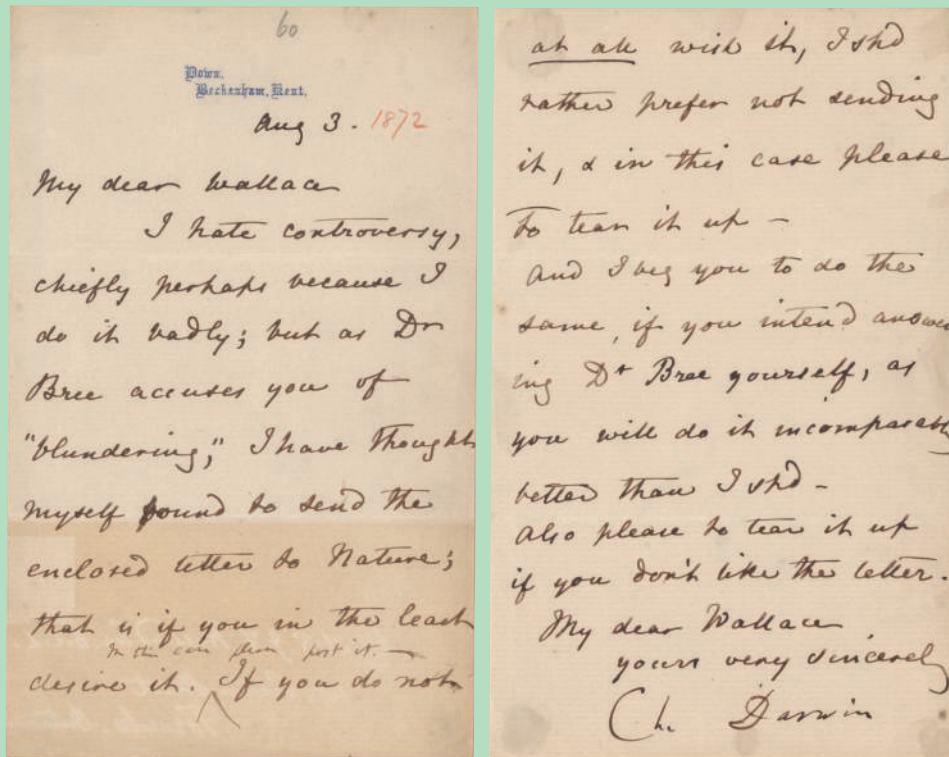 60
Down,
Beckenham, Kent.
Aug 3. 1872
My dear Wallace
I hate controversy,
chiefly perhaps because I
do it badly; but as Dr
Bree accuses you of
"blundering", I have thought
myself bound to send the
enclosed letter to Nature;
that is if you in the least
In this case please post it. —
desire it. If you do not
at all wish it, I shd
rather prefer not sending
it, & in this case please
to tear it up —
And I beg you to do the
same, if you intend answer
ing Dr Bree yourself, as
you will do it incomparably
better than I shd —
Also please to tear it up
if you don't like the letter.
My dear Wallace
yours very sincerely
Ch. Darwin